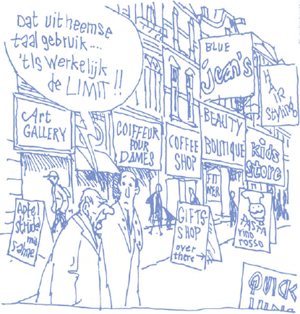 Dat uitheemse
taalgebruik....
'tIs werkelijk
de LIMIT!!
BLUE
jean's
HAIR
Styling
Art
GALLERY
COIFFEUR
POUR
DAMES
COFFEE
SHOP
BEAUTY
BOUTIQUE
Kids
Store
GIFTS
SHOP
over
there
PASTA
vino
rosso
QUICK